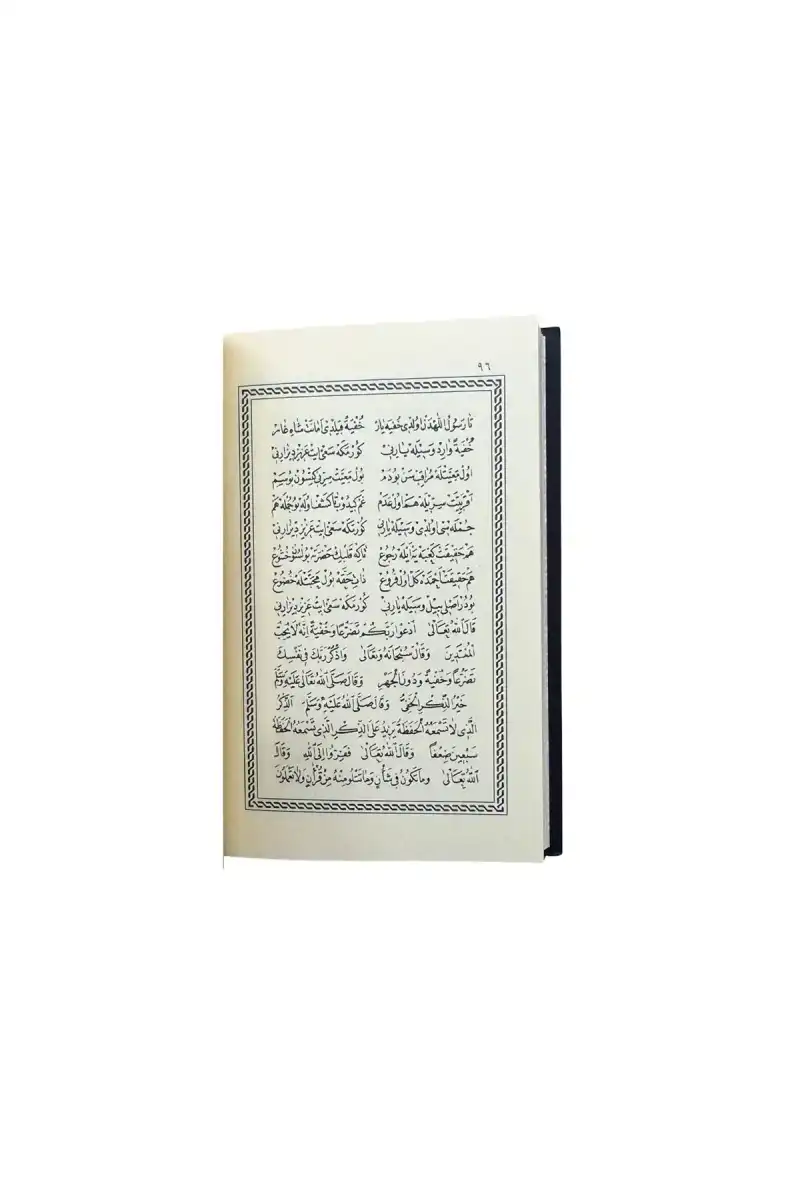 ٩٦
تا رسول اللهدن اولدی خفیه یار خفیة قیلدی امانت شاه غار
خفیة وارد وسیله یا ربی کورمکه سعی ایت عزیز دیداربی
اول معیتله مراقب سن بودم بول معیت سربی کیتسون بوسیم
اقربیت سریله هم اول عدم غم کیدوب تا کشف اوله بو جمله هم
جمله نئی اولدی وسیله یا ربی کورمکه سعی ایت عزیز دیداربی
هم حقیقت کعبه یه ایله رجوع تا که قلبك حضرته بولسون خشوع
هم حقیقت احمده کل اول فروع ذات حقه بول محبتله خضوع
بودر اصلی بیل وسیله یا ربی کورمکه سعی ایت عزیز دیداربی
قَالَ اللهُ تَعَالَى ادْعُوا رَبَّكُمْ تَضَرُّعًا وَخُفْيَةً اِنَّهُ لَا يُحِبُّ
الْمُعْتَدِينَ وَقَالَ سُبْحَانَهُ وَتَعَالَى وَاذْكُرْ رَبَّكَ فِي نَفْسِكَ
تَضَرُّعًا وَخُفْيَةً وَدُونَ الْجَهْرِ وَقَالَ صَلَّى اللهُ تَعَالَى عَلَيْهِ وَسَلَّمَ
خَيْرُ الذِّكْرِ الْخَفِيُّ وَقَالَ صَلَّى اللهُ عَلَيْهِ وَسَلَّمَ الذِّكْرُ
الَّذِي لَا تَسْمَعُهُ الْحَفَظَةُ يَزِيدُ عَلَى الذِّكْرِ الَّذِي تَسْمَعُهُ الْحَفَظَةُ
سَبْعِينَ ضِعْفًا وَقَالَ اللهُ تَعَالَى فَفِرُّوا اِلَى اللهِ وَقَالَ
اللهُ تَعَالَى وَمَا تَكُونُ فِي شَأْنٍ وَمَا تَتْلُو مِنْهُ مِنْ قُرْآنٍ وَلَا تَعْمَلُونَ